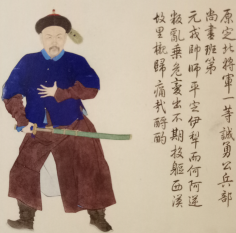 原定北將軍一等誠勇公兵部
尚書班第
元戎帥師平定伊犁而何阿逆
叛亂乗危出不期投軀西漠
故里櫬歸痛哉酹酌